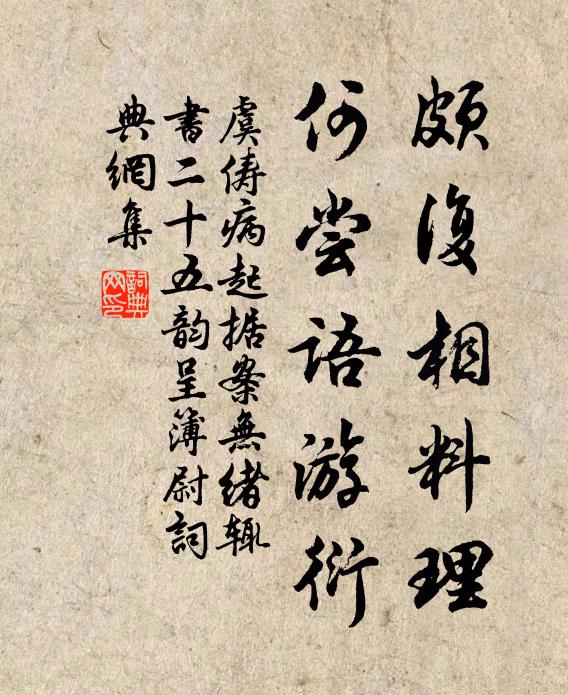 頗復相料理
何尝語游衍
虞儔病起据案無绪辄
書二十五韵呈簿尉詞
典網集
詞典
网印